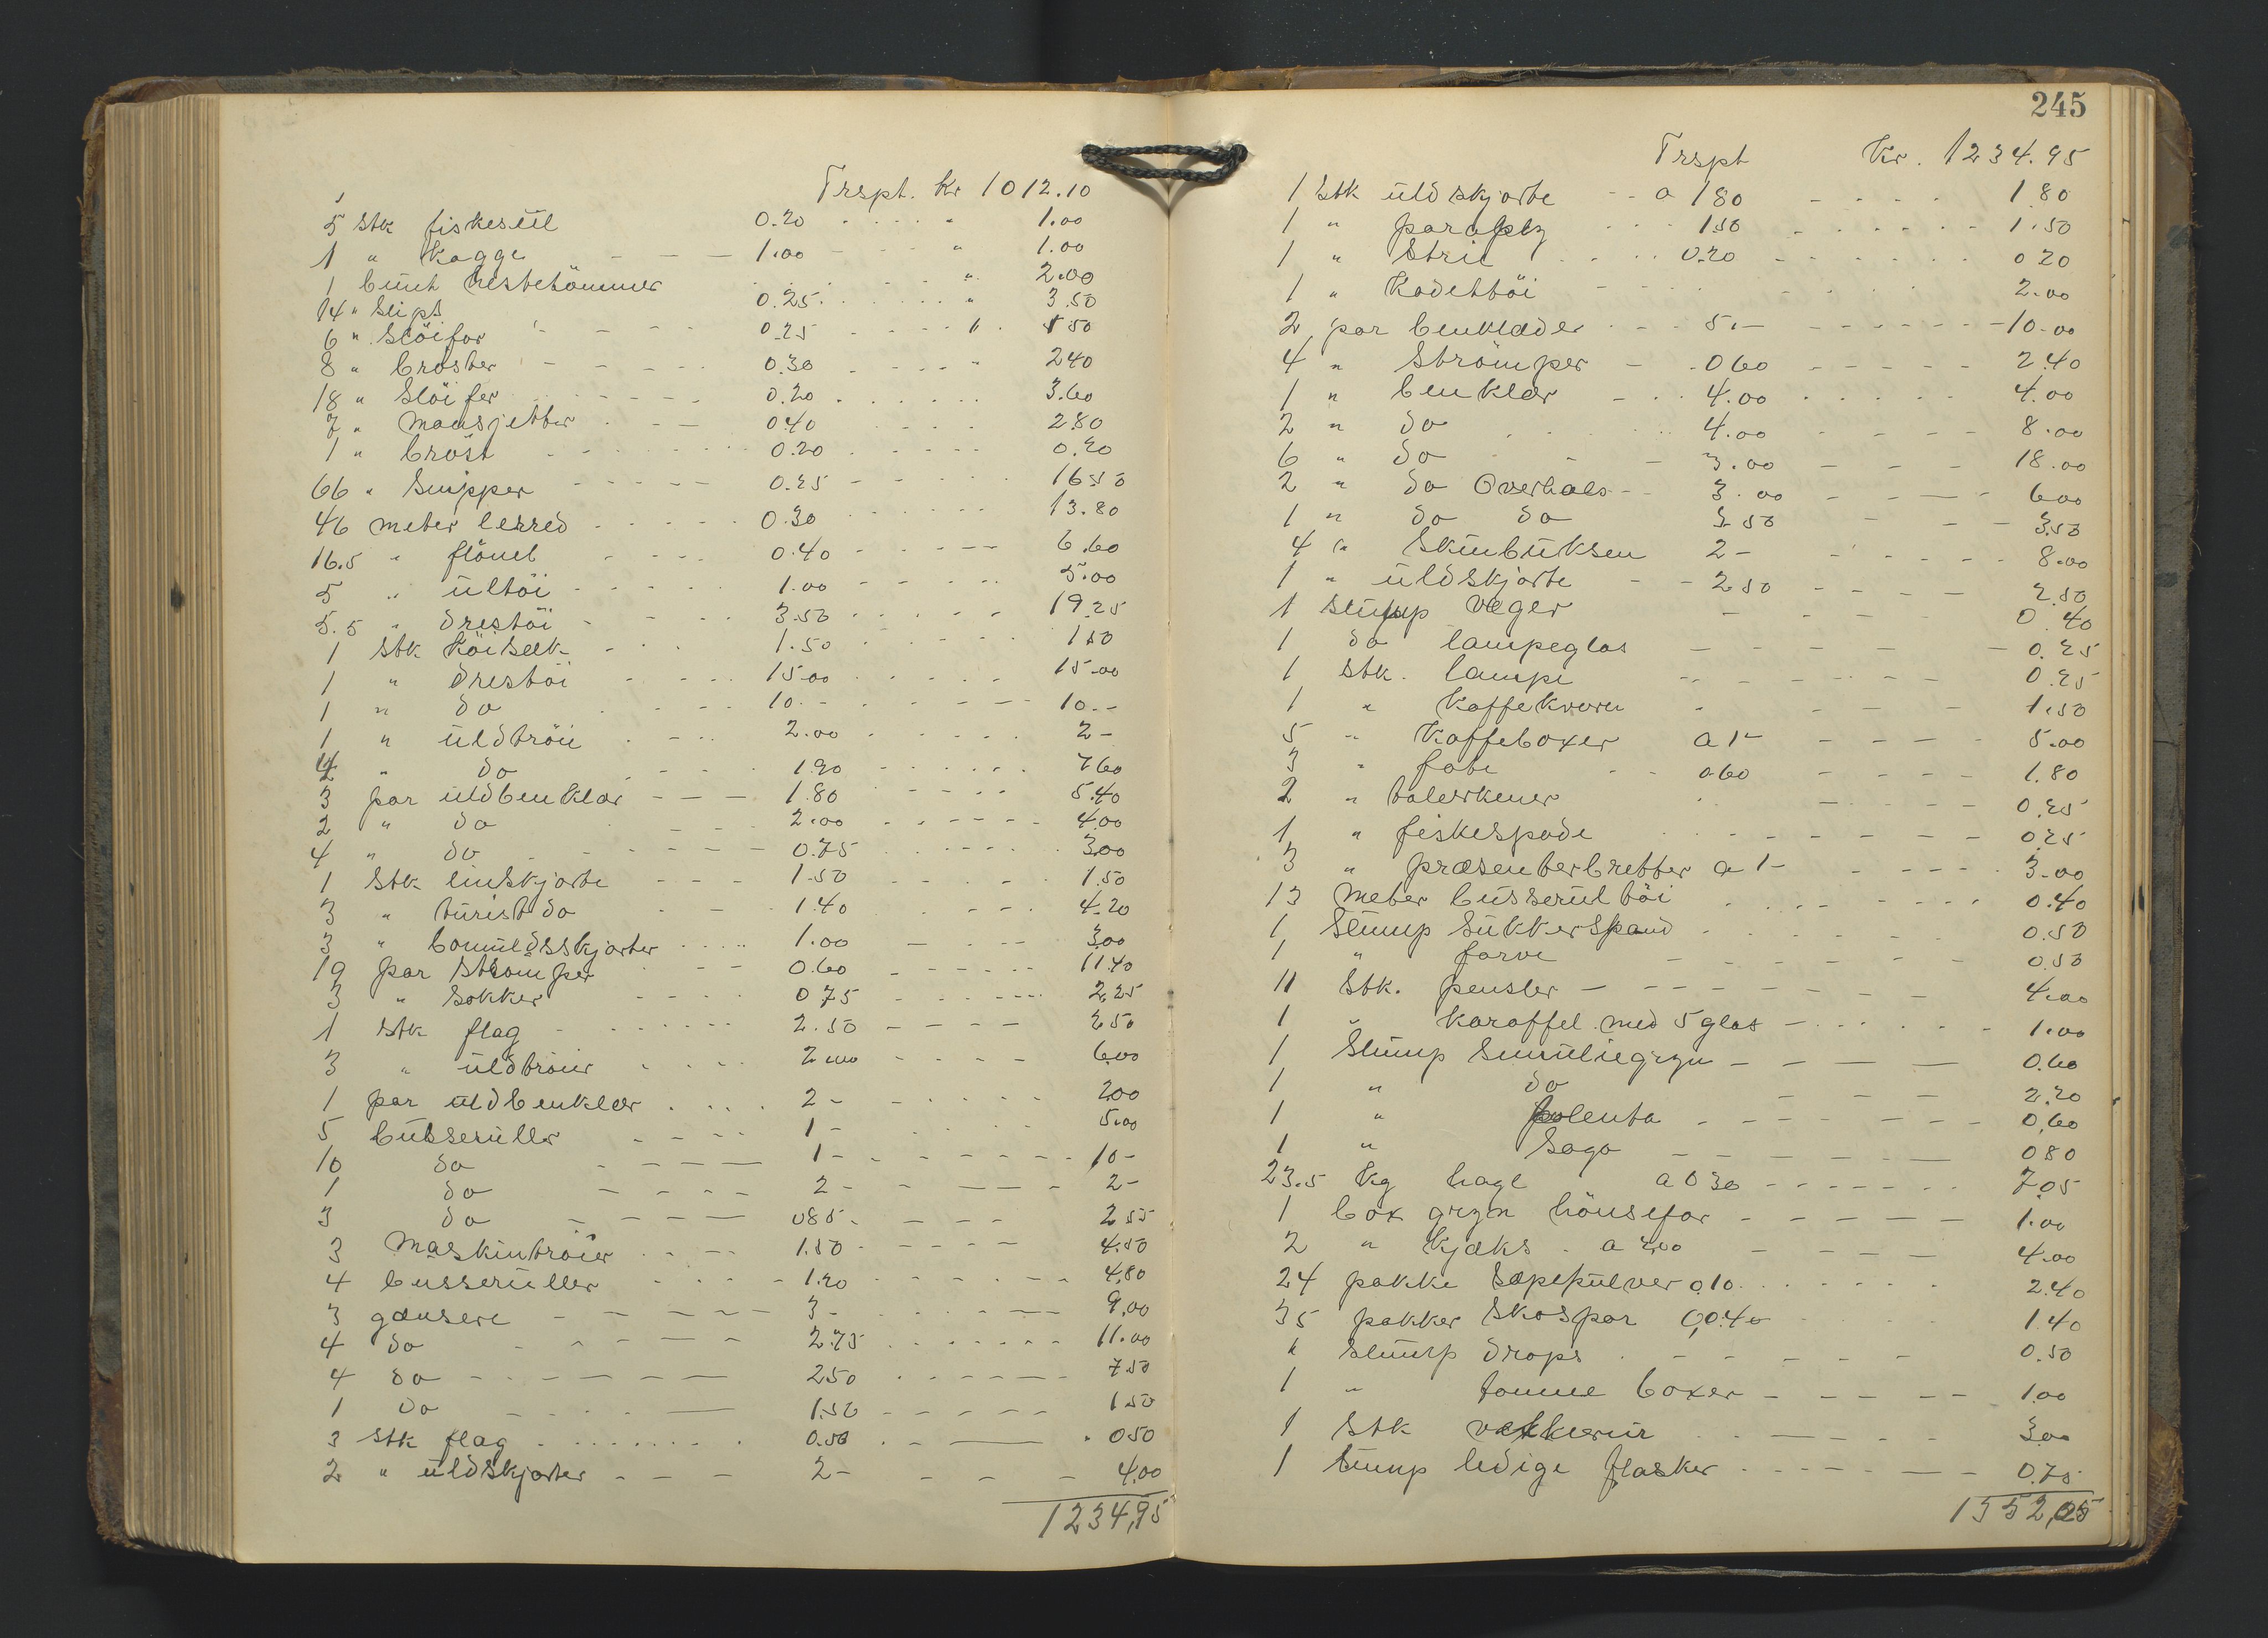 Trspt. Kr 1012.10
5 stk fiskesül 0.20 1.00
1 " Kagge 1.00 " 1.00
1 bünt hestetömmer " 2.00
14 " Slips 0.25 " 3.50
6 " Slöifor 0.25 " 1 50
8 " bröster 0.30 " 2 40
18 " Slöifer 0.20 3.60
7 " mansjetter 0.40 2.80
1 " bröst 0.20 0.20
66 " Snipper 0.25 16.50
46 meter lerred 0.30 13.80
16.5 " flönel 0.40 6.60
5 " ültöi 1.00 5.00
5.5 " drestöi 3.50 19.25
1 stk Köisæk 1.50 1 50
1 " drestöi 15.00 15.00
1 " do 10.- 10.-
1 " üldtröie 2.00 2-
4 " do 1.90 7 60
3 par üldbenklær 1.80 5.40
2 " do 2.00 4.00
4 " do 0.75 3.00
1 Stk linskjorte 1.50 1.50
3 " türist do 1.40 4.20
3 " bomüldsskjorter 1.00 3.00
19 par Strömper 0.60 11.40
3 " Sokker 0 75 2,25
1 stk flag 2.50 2 50
3 " üldtröier 2.00 6.00
1 par üldbenklær 2- 2.00
5 büsserüller 1- 5.00
10 do 1- 10-
1 do 2- 2-
3 do 0 85 2 55
3 Maskintröier 1.50 4.50
4 busserüller 1.20 4,80
3 gænsere 3- 9,00
4 do 2.75 11.00
4 do 2.50 7.50
1 do 1.50 1 50
3 stk flag 0.50 " 0 50
2 " üldskjorter 2- 4.00
1234,95
245
Trspt Kr. 1234.95
1 Stk üldskjorte a 1 80 1.80
1 " paraply 1.50 1.50
1 " Strie 0.20 0 20
1 " Kadettöi 2.00
2 par benklæder 5.- 10.00
4 " Strömper 0 60 2.40
1 " benklær 4.00 4.00
2 " do 4.00 8.00
6 " do 3.00 18.00
2 " do Overhals 3.00 6.00
1 " do do 3 50 3.50
4 " Skinbüksen 2- 8.00
1 " üldskjorte 2 50 2.50
1 Slump væger 0.40
1 do lampeglas 0.25
1 stk. lampe 0.25
1 " Kaffekvern 1.50
5 " Kaffeboxer a 1- 5.00
3 " fate 0.60 1.80
2 " talerkener 0.25
1 " fiskespade 0.25
3 " præsenterbretter a 1- 3.00
13 meter büsserültöi 0.40
1 Slump Sükkerspand 0.50
1 " farve 0.50
11 Stk. pensler 4.00
1 " karaffel med 5 glas 1.00
1 Slump Semüliegryn 0.60
1 " do 2.20
1 " polenta 0,60
1 " Sago 0 80
23.5 Kg hagl a 0 30 7.05
1 box gryn hönsefor 1.00
2 " Kjæks a 2.00 4.00
24 pakke Sæpepülver 0.10 2.40
35 pakker Skospar 0,04 1.40
1 slump drops 0.50
1 " tomme boxer 1.00
1 Stk vækkerür 3.00
1 Slump ledige flasker 0.75
1352,05